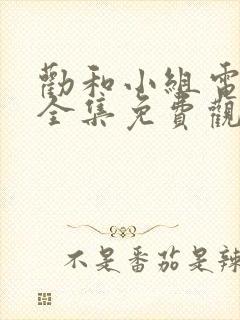 勸和小組電
全集免費觀
不是番茄是辣